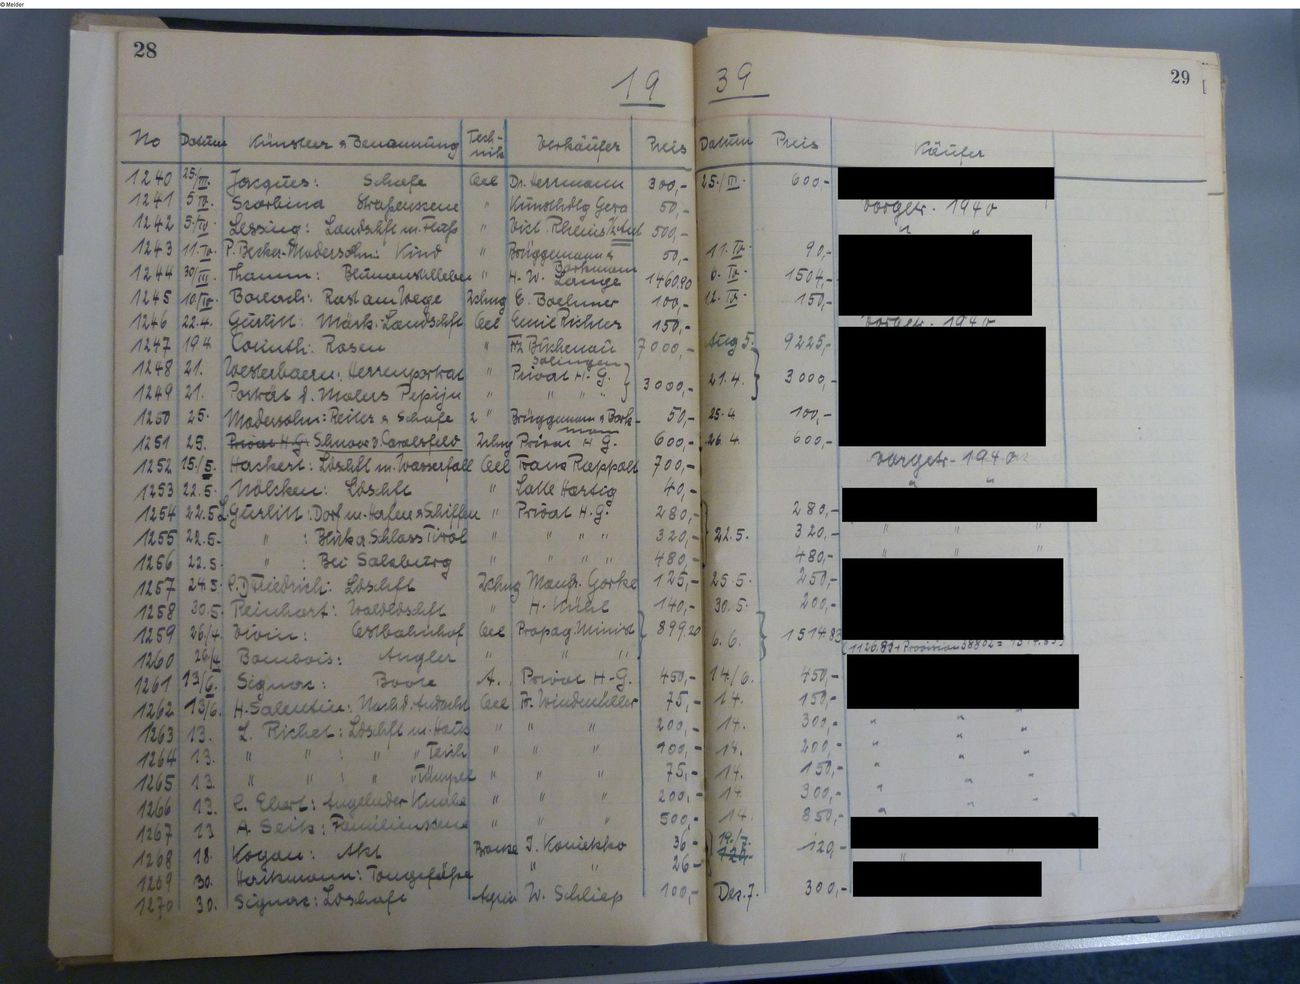 © Melder
28
29
19 39
No Datum Künstler & Benennung Technik Verkäufer Preis Datum Preis Käufer
1240 25/III. Jacques: Schafe Oel Dr. Herrmann 300,- 25./III. 600,-
1241 5/IV. Scorbina Straßenszene " Kunsthdlg Gera 50,- Vorgetr. 1940
1242 5/IV. Lessing: Landschft m. Floß " Vict. Rheins 500,- " "
1243 11.IV. P. Becker-Modersohn: Kind " Brüggemann & Borkmann 50,- 11.IV. 90,-
1244 30/III Thamm: Blumenstilleben " H. W. Lange 1460,90 6.IV. 1504,-
1245 10/IV. Barlach: Rast am Wege Zchng C. Boehmer 100,- 12.IV. 150,-
1246 22.4. Gurlitt: Märk. Landschft Oel Emil Richter 150,- Vorgetr. 1940
1247 19.4 Corinth: Rosen " Fr. Buchenau 7000,- Aug 5. 9225,-
1248 21. Herrenportrat " Solingen Privat H. G. 3000,- 21.4. 3000,-
1249 21. Porträt d. Malers " " " "
1250 25. Modersohn: Reiter & Schafe 2 " Brüggemann & Borkmann 50,- 25.4 100,-
1251 25. Privat H G. Schnorr v. Carolsfeld Zchng Privat H G. 600,- 26.4. 600,-
1252 15./5. Hackert: Ldschft m. Wasserfall Oel Franz Rappolt 700,- Vorgetr. 1940
1253 22.5. Nölken: Ldschft " Lotte Hartig 40,- " "
1254 22.5. L. Gurlitt: Dorf m. Hafen & Schiffen " Privat H. G. 280,- 280,-
1255 22.5. " : Blick a. Schloss Tirol " " " " 320,- 22.5. 320,- " " "
1256 22.5. " : Bei Salzburg " " " " 480,- 480,- " " "
1257 24.5. C. D Friedrich: Ldschft Zchng Mauf. Gorke 125,- 25.5. 250,-
1258 30.5. Reinhart: Waldldschft " H. Kühl 140,- 30.5. 200,-
1259 26/4. Vivin: Ostbahnhof Oel Propag Minist 899,20 6.6. 1514.83
1260 26/4 Bombois: Angler " " " "
1261 13/6. Signac: Boote A. Privat H-G. 450,- 14/6. 450,-
1262 13/6. H. Salentin: Nach d. Andacht Oel Fr. 75,- 14. 150,- " " "
1263 13. L. Richet: Ldschft m. Haus " " " 200,- 14. 300,- " " "
1264 13. " " : " " Teich " " " 100,- 14. 200,- " " "
1265 13. " " : " " Tümpel " " " 75,- 14. 150,- " " "
1266 13. C. Ebert: Angelnder Knabe " " " 200,- 14 300,- " " "
1267 13 A. Seitz: Familienszene " " " 500,- 14. 850,-
1268 18. Kogan: Akt Bronze J. 36- 19./7. 120,- " "
1269 30. Tongefäße " " 26-
1270 30. Signac: Ldschaft Aquar W. Schliep 100,- Dez. 7. 300,-